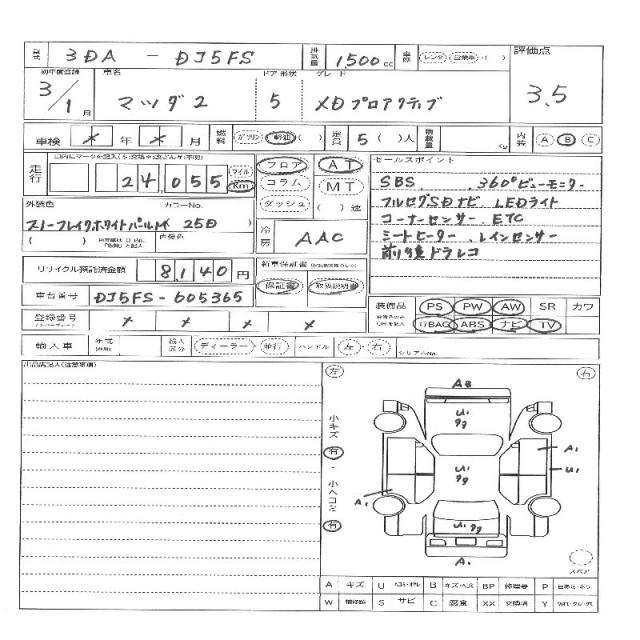 型式 3DA - DJ5FS 排気量 1,500 cc 車歴 レンタ 営業車 ( ) 評価点
初年度登録 車名 ドア 形状 グレード
3/1月 マツダ2 5 XDプロアクティブ 3.5
車検 * 年 * 月 燃料 ガソリン 軽油 ( ) 定員 5 ( )人 積載量 kg 内装 A B C
走行 24,055 マイル Km フロア AT セールスポイント
コラム MT SBS. 360°ビューモニター
ダッシュ ( )速 フルセグSDナビ LEDライト
外装色 カラーNo. コーナーセンサー ETC
スノーフレイクホワイトパールM 25D 冷房 AAC シートヒーター レインセンサー
( ) 内装色 前後ドラレコ
リサイクル預託済金額 8,140円 新車保証書
保証書 取扱説明書
車台番号 DJ5FS-605365 装備品 PS PW AW SR カワ
登録番号 * * * * ABS ナビ TV
輸入車 年式 輸入区分 ディーラー 並行 ハンドル 左 右 シリアルNo.
出品店記入(注意事項)
左 右
A B
U1
gg
小キズ 有 ・ 小ヘコミ 有
A1
U1
U1
gg
A1
U1 gg
A1
スペア
A キズ U B BP 修理跡 P
W S サビ C 腐食 XX 交換済 Y